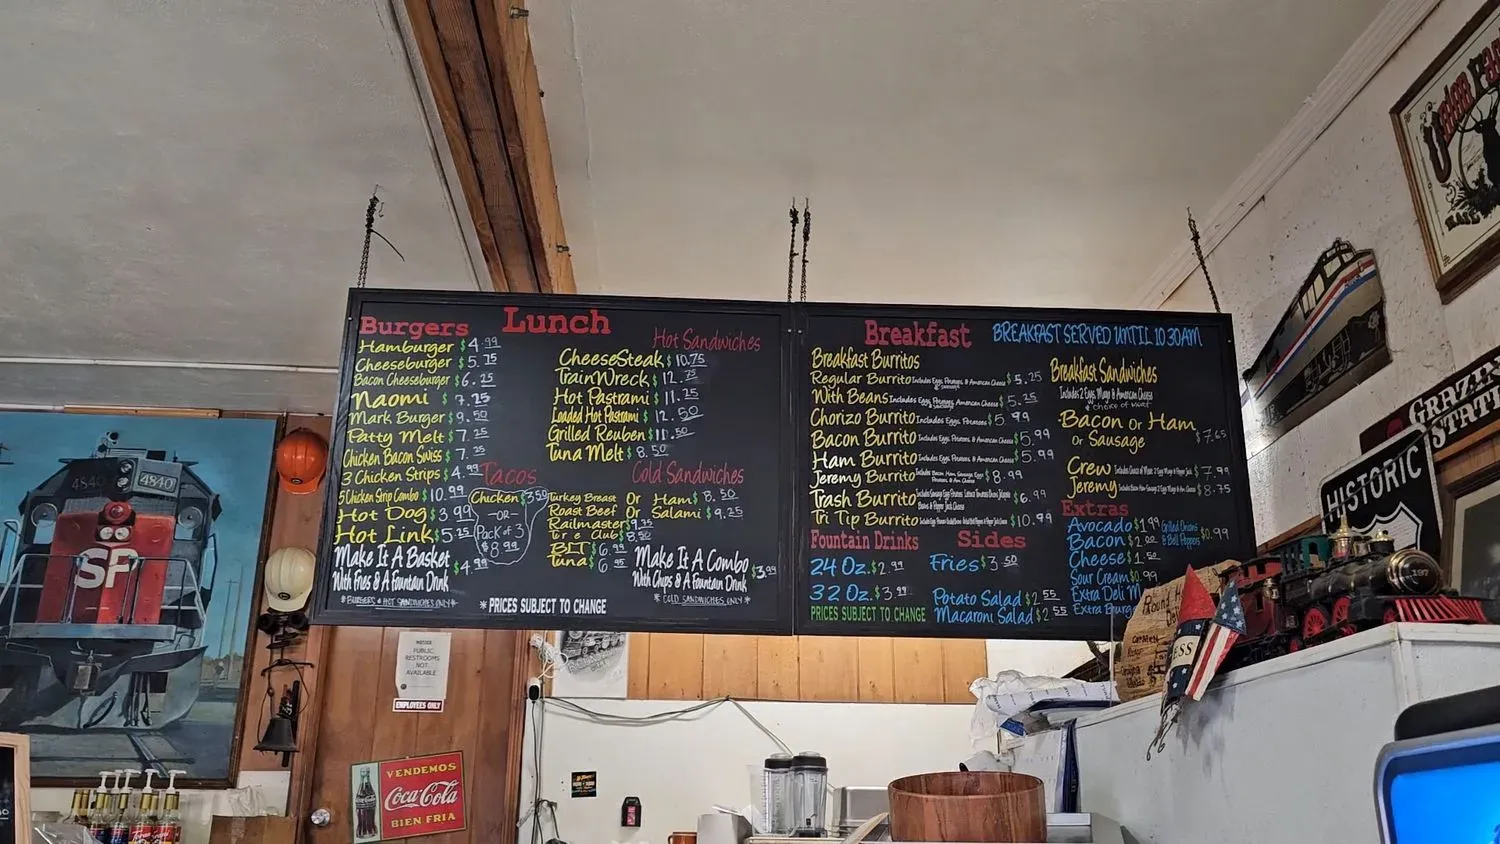 Lunch
Burgers
Hamburger $4.99
Cheeseburger $5.75
Bacon Cheeseburger $6.25
Naomi $7.25
Mark Burger $9.50
Patty Melt $7.25
Chicken Bacon Swiss $7.25
3 Chicken Strips $4.99
5 Chicken Strip Combo $10.99
Hot Dog $3.99
Hot Link $5.25
Make It A Basket $4.99
With Fries & A Fountain Drink
*BURGERS & HOT SANDWICHES ONLY*
Tacos
Chicken $3.50
-OR-
Pack of 3
$8.99
Hot Sandwiches
CheeseSteak $10.75
TrainWreck $12.75
Hot Pastrami $11.25
Loaded Hot Pastrami $12.50
Grilled Reuben $11.50
Tuna Melt $8.50
Cold Sandwiches
Turkey Breast Or Ham $8.50
Roast Beef Or Salami $9.25
Railmaster $9.35
Club $8.50
BLT $6.
Tuna $6.95
Make It A Combo $3.99
With Chips & A Fountain Drink
*COLD SANDWICHES ONLY*
*PRICES SUBJECT TO CHANGE
Breakfast
BREAKFAST SERVED UNTIL 10:30AM
Breakfast Burritos
Regular Burrito Includes Eggs Potatoes & American Cheese $5.25
With Beans Includes Eggs Potatoes & American Cheese $5.25
Chorizo Burrito Includes Eggs Potatoes $5.99
Bacon Burrito Includes Eggs Potatoes & American Cheese $5.99
Ham Burrito Includes Eggs Potatoes & American Cheese $5.99
Jeremy Burrito $8.99
Trash Burrito $6.99
Tri Tip Burrito $10.99
Breakfast Sandwiches
Includes 2 Eggs Mayo & American Cheese
& choice of Meat
Bacon or Ham
or Sausage $7.65
Crew $7.99
Jeremy $8.75
Extras
Avocado $1.99
Bacon $2.00
Cheese $1.50
Sour Cream $0.99
Extra Deli M
Extra Burge
Grilled Onions
& Bell Peppers $0.99
Fountain Drinks
24 Oz. $2.99
32 Oz. $3.
PRICES SUBJECT TO CHANGE
Sides
Fries $3.50
Potato Salad $2.55
Macaroni Salad $2.55
4840
4840
SP
NOTICE
PUBLIC
RESTROOMS
NOT
AVAILABLE
EMPLOYEES ONLY
VENDEMOS
Coca-Cola
BIEN FRIA
HISTORIC
STATI
197